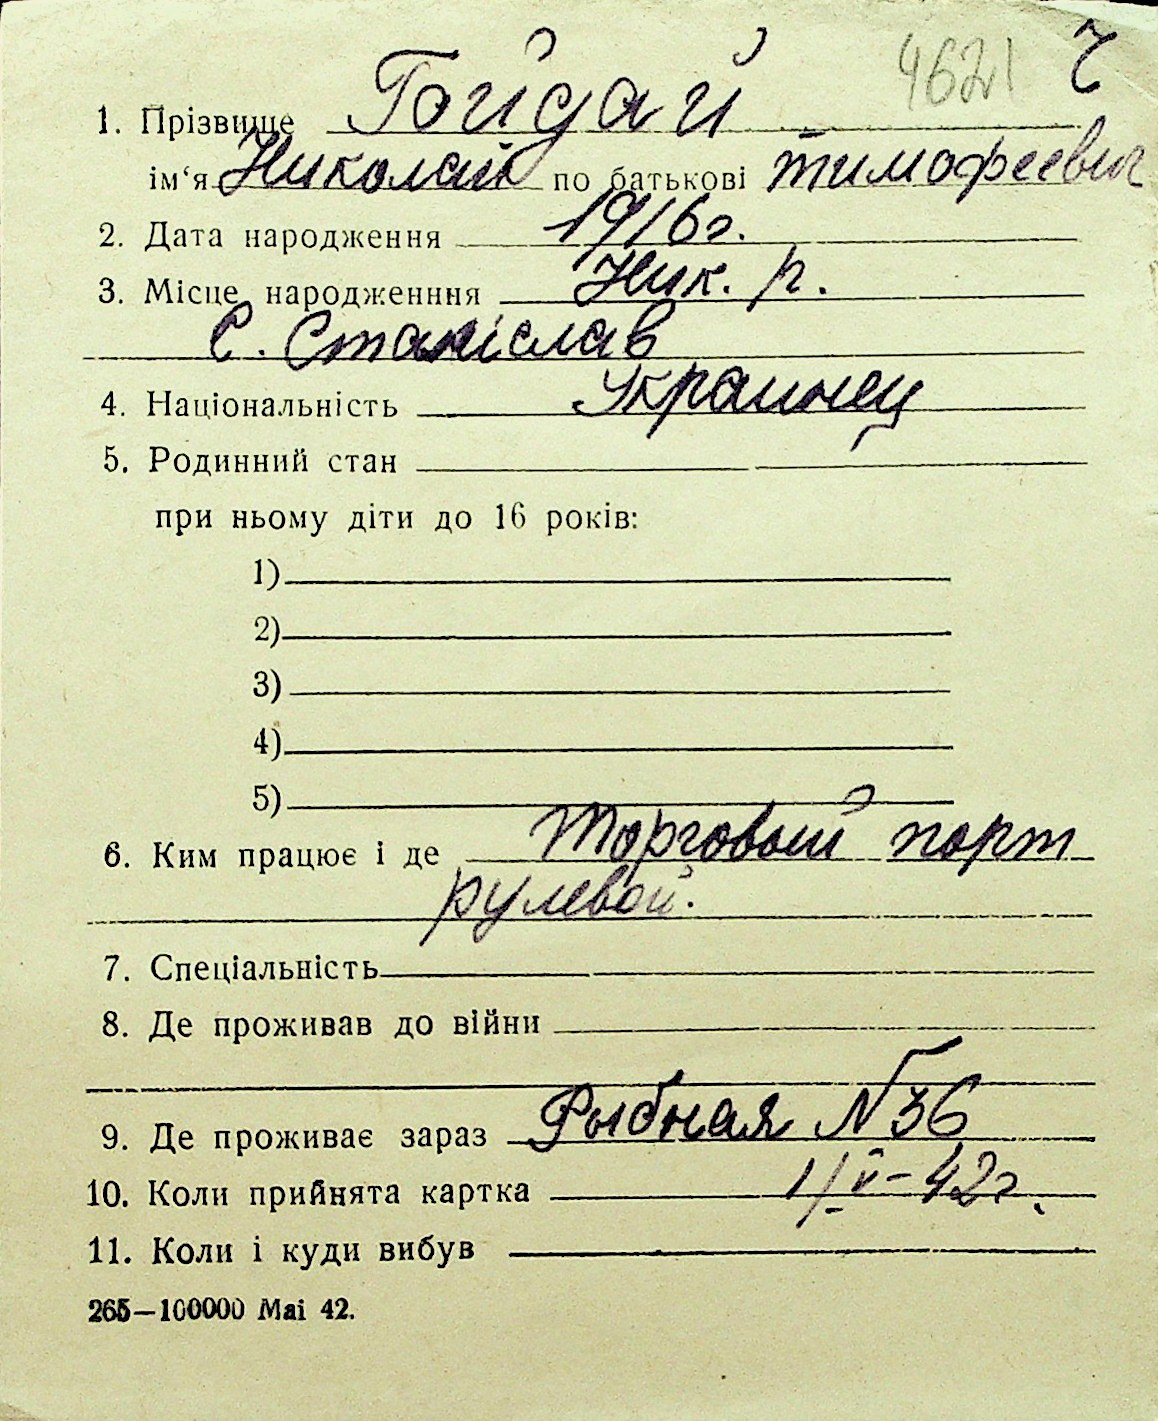 4621 Ч
1. Прізвище Гойдай
ім‘я Николай по батькові Тимофеевич
2. Дата народження 1916 г.
3. Місце народженння Ник. р.
с. Станіслав
4. Національність Украинец
5. Родинний стан
при ньому діти до 16 років:
1)
2)
3)
4)
5)
6. Ким працює і де Торговый порт
рулевой.
7. Спеціальність
8. Де проживав до війни
9. Де проживає зараз Рыбная №36
10. Коли прийнята картка 1/V-42г.
11. Коли і куди вибув
265—100000 Mai 42.